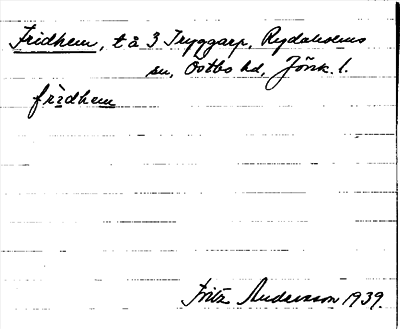 Fridhem, t å 3 Tryggarp, Rydaholms
sn, Östbo hd, Jönk. l.
frìdhem
Fritz Andersson 1939.